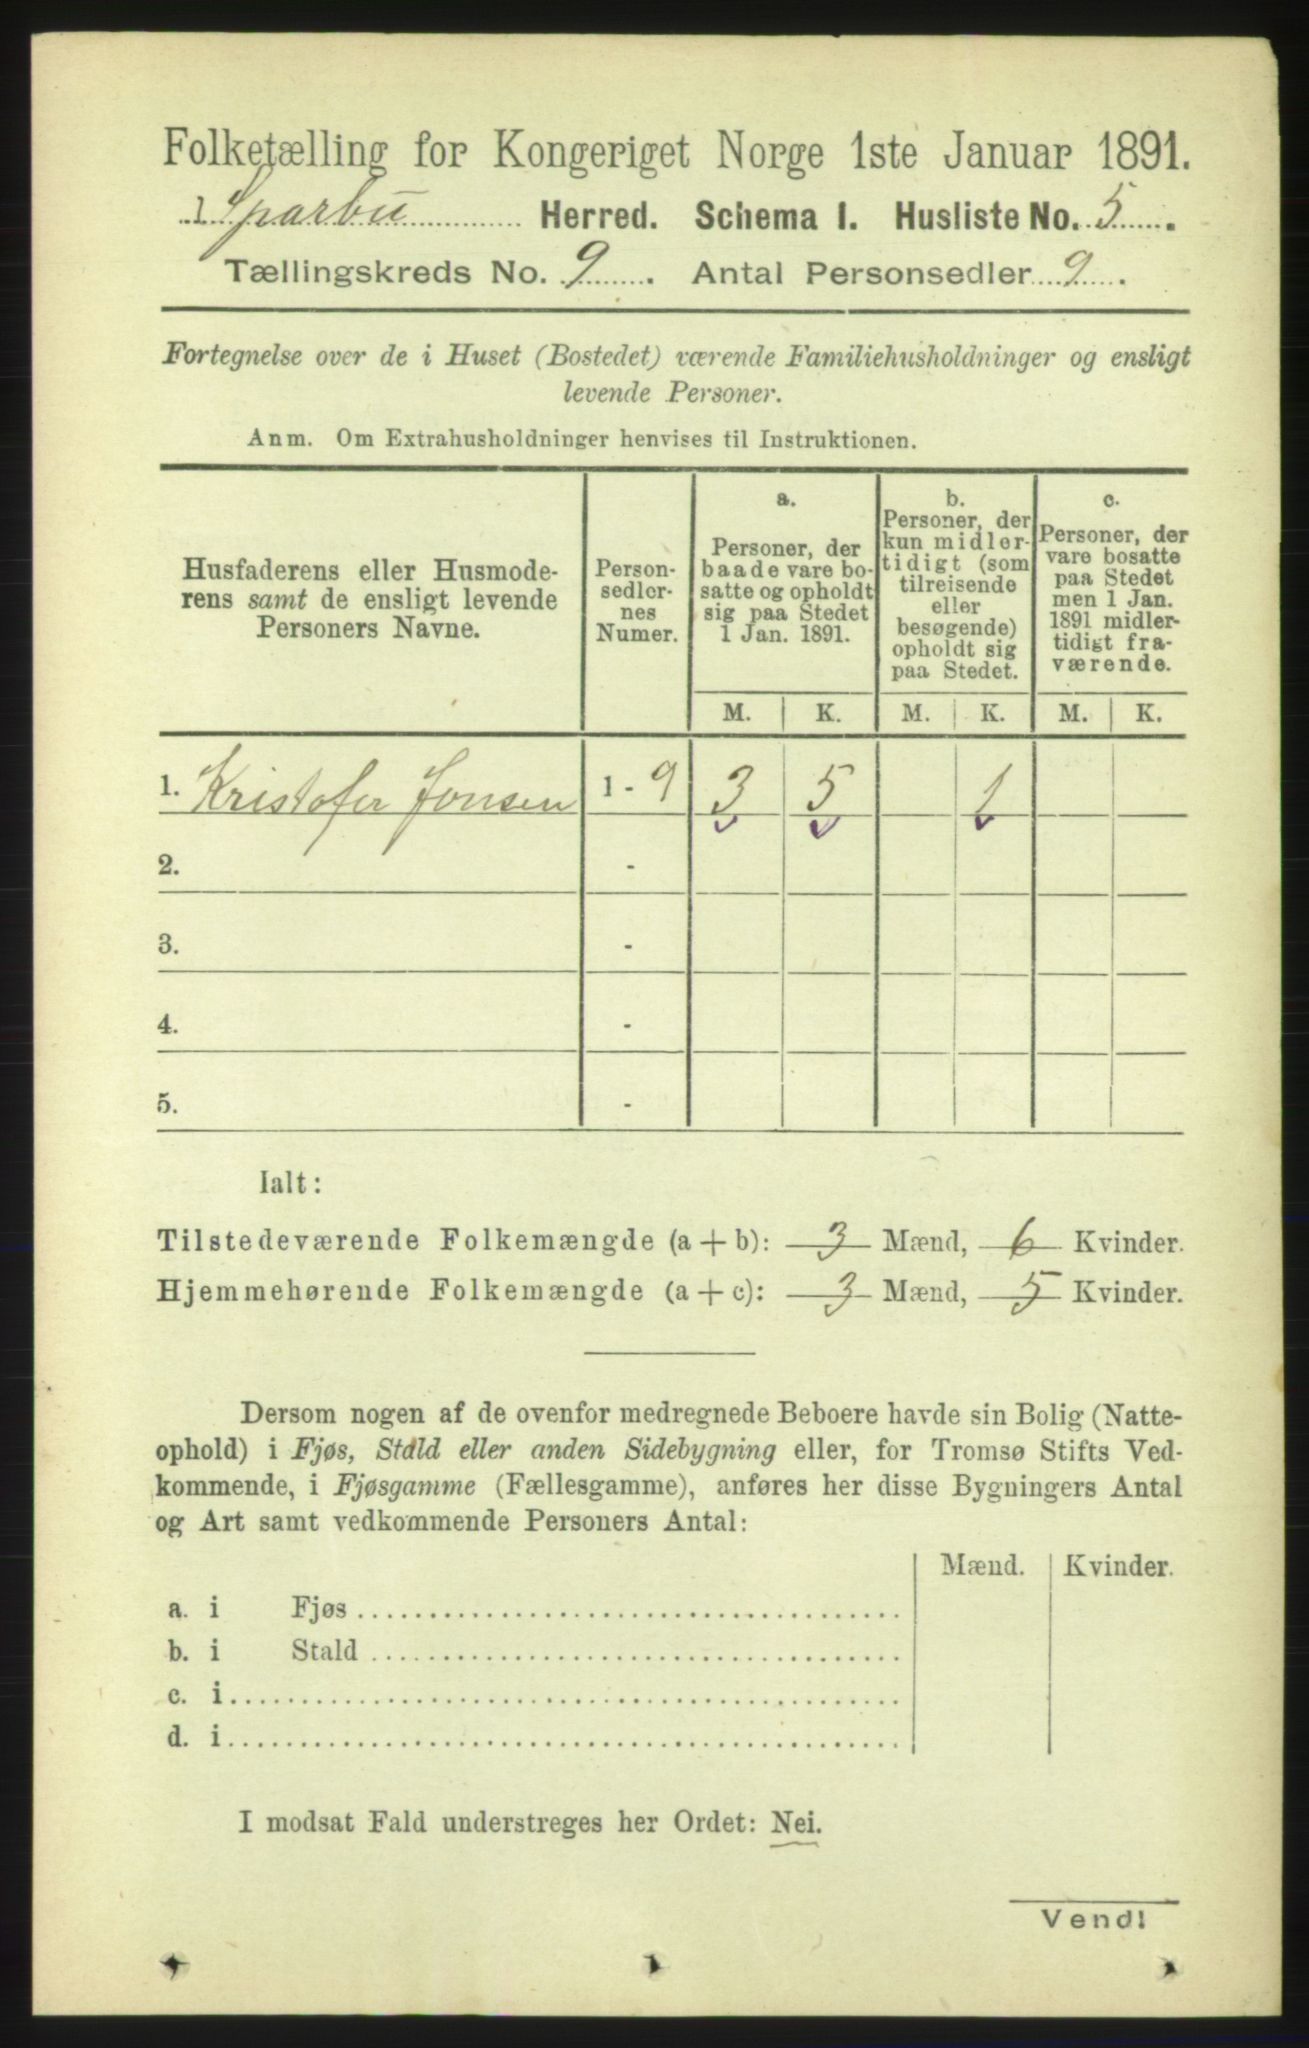 Folketælling for Kongeriget Norge 1ste Januar 1891.
I Sparbu Herred. Schema I. Husliste No. 5.
Tællingskreds No. 9. Antal Personsedler 9.
Fortegnelse over de i Huset (Bostedet) værende Familiehusholdninger og ensligt
levende Personer.
Anm. Om Extrahusholdninger henvises til Instruktionen.
Husfaderens eller Husmode-
rens samt de ensligt levende
Personers Navne.
Person-
sedler-
nes
Numer.
a.
Personer, der
baade vare bo-
satte og opholdt
sig paa Stedet
1 Jan. 1891.
b.
Personer, der
kun midler-
tidigt (som
tilreisende
eller
besøgende)
opholdt sig
paa Stedet.
c.
Personer, der
vare bosatte
paa Stedet
men 1 Jan.
1891 midler-
tidigt fra-
værende.
M. K. M. K. M. K.
1. Kristofer Jonsen 1 - 9 3 5 1
2. -
3. -
4. -
5. -
Ialt:
Tilstedeværende Folkemængde (a + b): 3 Mænd, 6 Kvinder.
Hjemmehørende Folkemængde (a + c): 3 Mænd, 5 Kvinder.
Dersom nogen af de ovenfor medregnede Beboere havde sin Bolig (Natte-
ophold) i Fjøs, Stald eller anden Sidebygning eller, for Tromsø Stifts Ved-
kommende, i Fjøsgamme (Fællesgamme), anføres her disse Bygningers Antal
og Art samt vedkommende Personers Antal:
Mænd. Kvinder.
a. i Fjøs
b. i Stald
c. i
d. i
I modsat Fald understreges her Ordet: Nei.
Vend!